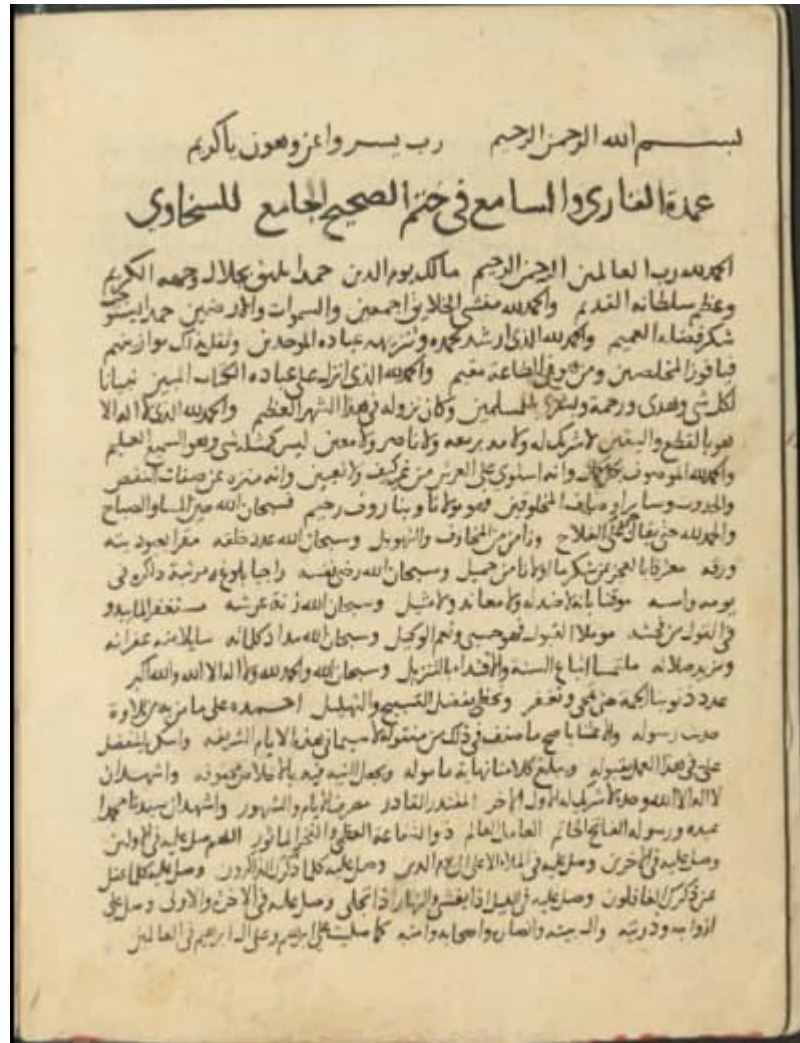 بسم الله الرحمن الرحيم رب يسر واعن وهون ياكريم
عمدة القارى والسامع فى ختم الصحيح الجامع للسخاوي
الحمد لله رب العالمين الرحمن الرحيم مالك يوم الدين حمدا يليق بجلال وجهه الكريم
وعظيم سلطانه القديم والحمد لله منشى الخلايق اجمعين والسموات والارضين حمدا يستوجب
شكر فضله العميم والحمد لله الذى ارشد لحمده وتنزيهه عباده الموحدين وتثقل به موازينهم
فيا فوز المخلصين ومن هو فى الطاعة مقيم والحمد لله الذى انزل على عباده الكتاب المبين تبيانا
لكل شى وهدى ورحمة وبشرى للمسلمين وكان نزوله فى هذا الشهر العظيم والحمد لله الذى لا اله الا
هو بالقطع واليقين لا شريك له ولا مد بر معه ولا ناصر ولا معين ليس كمثله شى وهو السميع العليم
والحمد لله الموصوف بكل كمال وانه استوي على العرش من غير كيف ولا تعيين وانه منزه عن صفات النقص
والحدوث وساير اوصاف المخلوقين فهو مولانا وربنا روف رحيم فسبحان الله حين المسا والصباح
والحمد لله حتى يقال حى على الفلاح ونامن من المخاوف والتهويل وسبحان الله عدد خلقه مقرا بعبوديته
ورقه معترفا بالعجز عن شكر ما اولانا من جميل وسبحان الله رضى نفسه راجيا بلوغ مرتبة ذاكره فى
يومه وامسه موقنا بانه لا ضد له ولا معاند ولا مثيل وسبحان الله زنة عرشه مستغفرا لما يبدو
فى القول من فحشه موملا القبول فهو حسبى ونعم الوكيل وسبحان الله مداد كلماته سايلا منه غفرانه
ومزيد صلاته ملتمسا اتباع السنة والاقتداء بالتنزيل وسبحان الله والحمد لله ولا اله الا الله والله اكبر
عدد ذنوبنا الجمة حتى تمحى وتغفر ونحظى بفضل التسبيح والتهليل احمده على ما من به من تلاوة
حديث رسوله والاعتنا باصح ما صنف فى ذلك من منقوله لا سيما فى هذه الايام الشريفه واسال المتفضل
على فى هذا العمل بقبوله ويبلغ كلا منا نهاية ماموله ويجعل النيه فيه بالاخلاص محفوفه واشهد ان
لا اله الا الله وحده لا شريك له الاول الاخر المقتدر القادر مصرف الايام والشهور واشهد ان سيدنا محمدا
عبده ورسوله الفاتح الخاتم العامل العالم ذو الشفاعة العظمى والفخر الماثور اللهم صل عليه فى الاولين
وصل عليه فى الاخرين وصل عليه فى الملاء الاعلى الى يوم الدين وصل عليه كلما ذكرك الذاكرون وصل عليه كلما غفل
عن ذكرك الغافلون وصل عليه فى الليل اذا يغشى والنهار اذا تجلى وصل عليه فى الاخرة والاولى وصل على
ازواجه وذريته وال بيته وانصاره واصحابه وامته كما صليت على ابراهيم وعلى ال ابراهيم فى العالمين